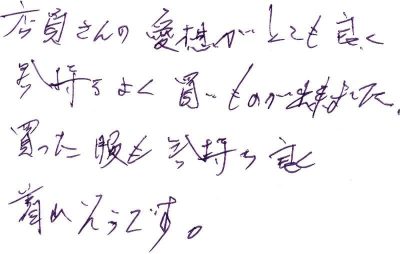 店員さんの愛想がとても良く
気持ちよく買いものが出来ました。
買った服も気持ち良く
着れそうです。